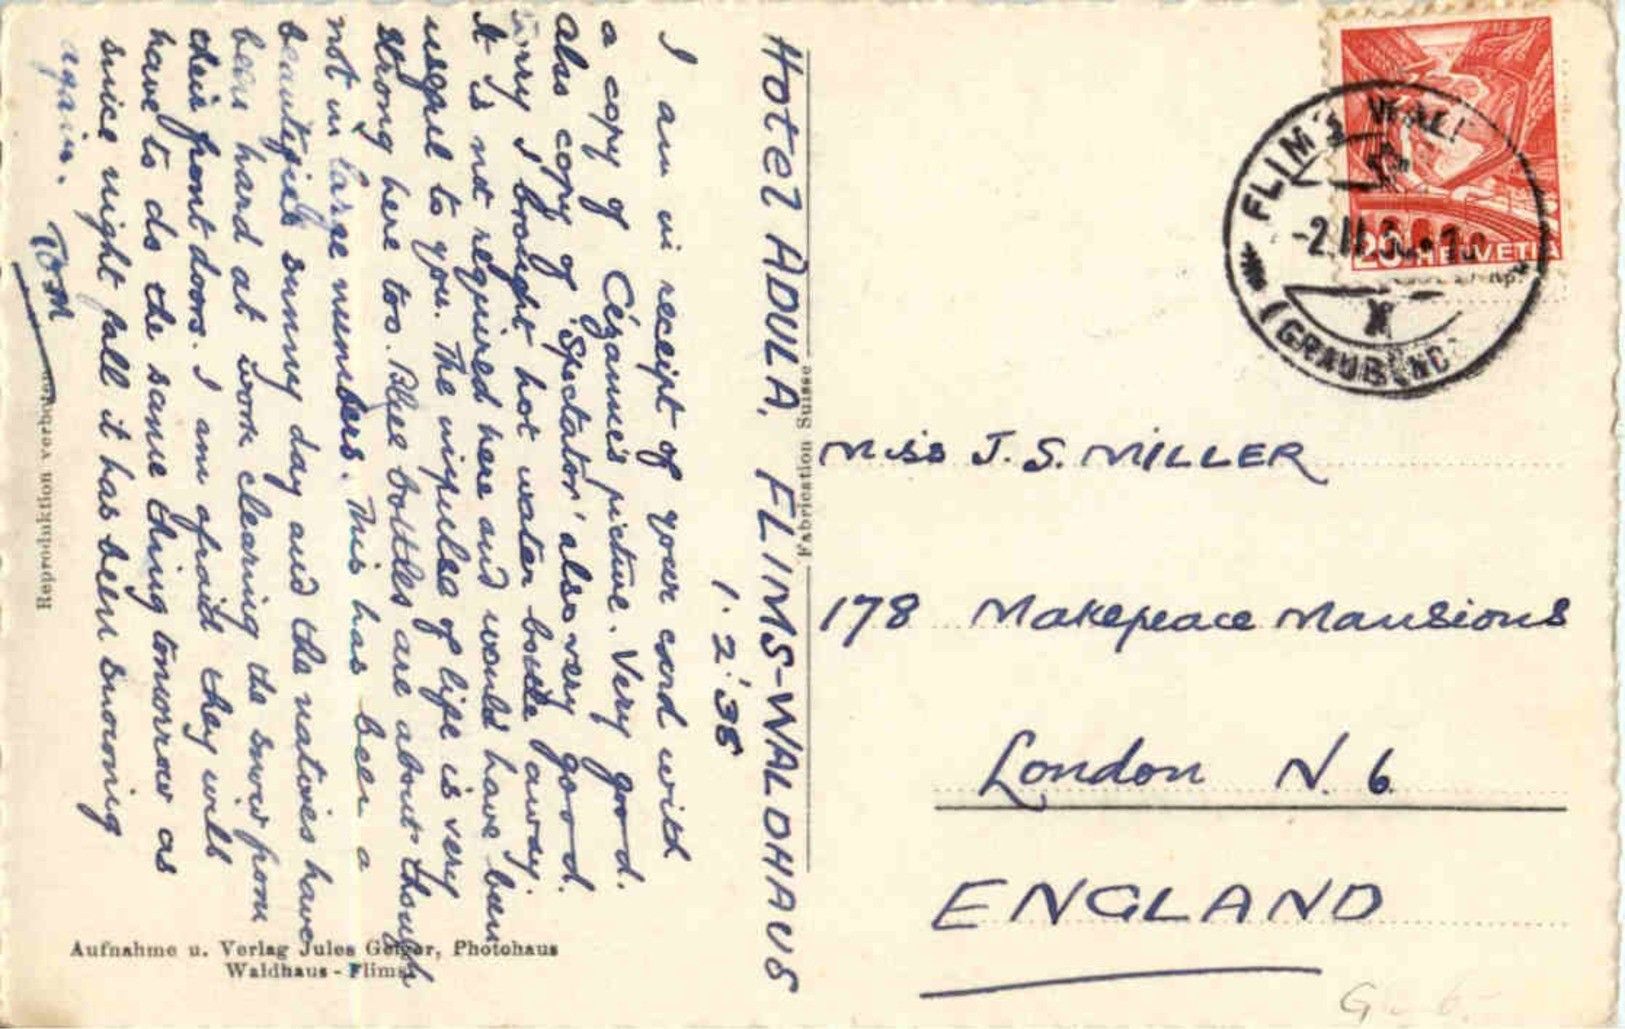 HOTEL ADULA, FLIMS-WALDHAUS
1.2.'38
I am in receipt of your card with
a copy of Cézanne's picture. Very good.
Also copy of 'Spectator' also very good.
Sorry I brought hot water bottle away.
It is not required here and would have been
useful to you. The impulse of life is very
strong here too. Blue bottles are about though
not in large numbers. This has been a
beautiful sunny day and the natives have
been hard at work clearing the snow from
their front doors. I am afraid they will
have to do the same thing tomorrow as
since night fall it has been snowing
again.
Tom
Reproduktion verboten
Aufnahme u. Verlag Jules Geiger, Photohaus
Waldhaus - Flims
Fabrication Suisse
FLIMS WAL
-2.II.
(GRAUBÜND
20 HELVETIA
Miss J. S. MILLER
178 Makepeace Mansions
London N. 6
ENGLAND